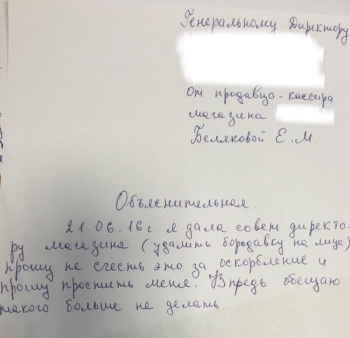 Генеральному Директору
от продавца-кассира
магазина
Беляковой Е.М.
Объяснительная.
21.06.16г. я дала совет директо-
ру магазина (удалить бородавку на лице)
прошу не счесть это за оскорбление и
прошу простить меня. Впредь обещаю
такого больше не делать.